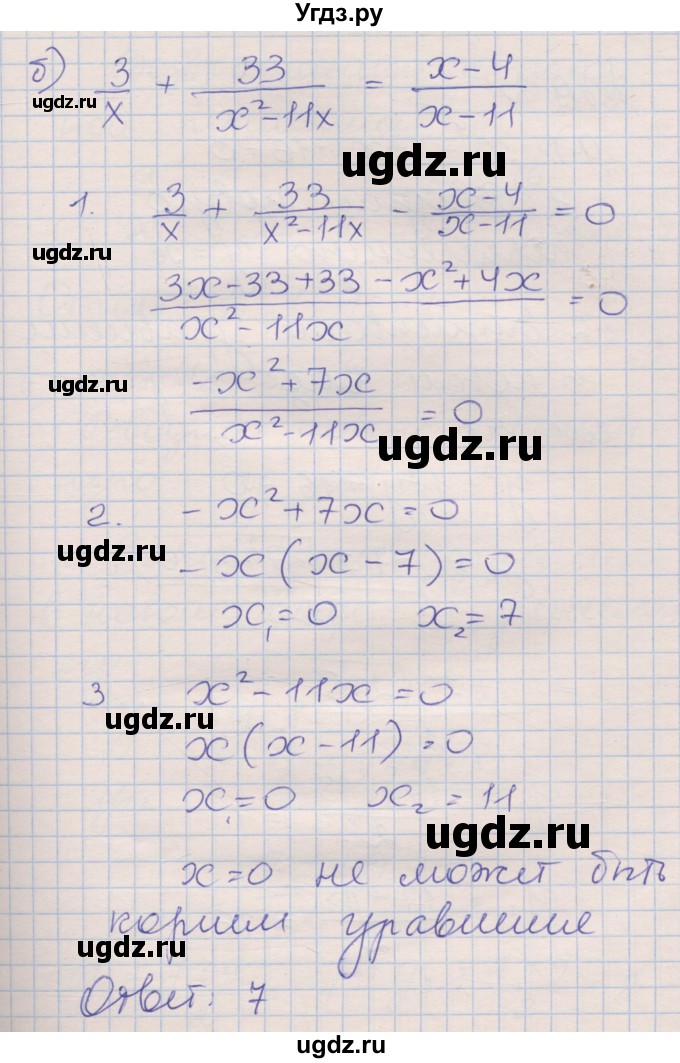 Угдз.ру
б) 3/x + 33/(x²-11x) = (x-4)/(x-11)
ugdz.ru
ugdz.ru
1. 3/x + 33/(x²-11x) - (x-4)/(x-11) = 0
ugdz.ru
(3x-33+33-x²+4x)/(x²-11x) = 0
ugdz.ru
(-x²+7x)/(x²-11x) = 0
ugdz.ru
2. -x²+7x=0
ugdz.ru
-x(x-7)=0
x₁=0 x₂=7
3 x²-11x=0
ugdz.ru
x(x-11)=0
x₁=0 x₂=11
ugdz.ru
x=0 не может быть
корним уравнение
ugdz.ru
Ответ: 7
ugdz.ru